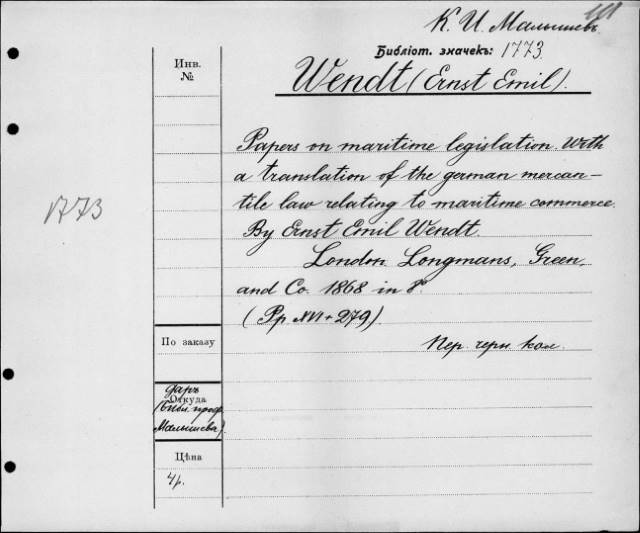 К. И. Малышевъ.
Библіот. значекъ: 1773.
Инв.
№
Wendt (Ernst Emil).
Papers on maritime legislation. With
a translation of the german mercan-
tile law relating to maritime commerce.
By Ernst Emil Wendt.
London. Longmans, Green,
and Co. 1868 in 8°.
(Pp. XVI + 279).
Пер. черн. кол.
1773
По заказу
даръ
Откуда
(Библ. проф.
Малышева)
Цѣна
4р.